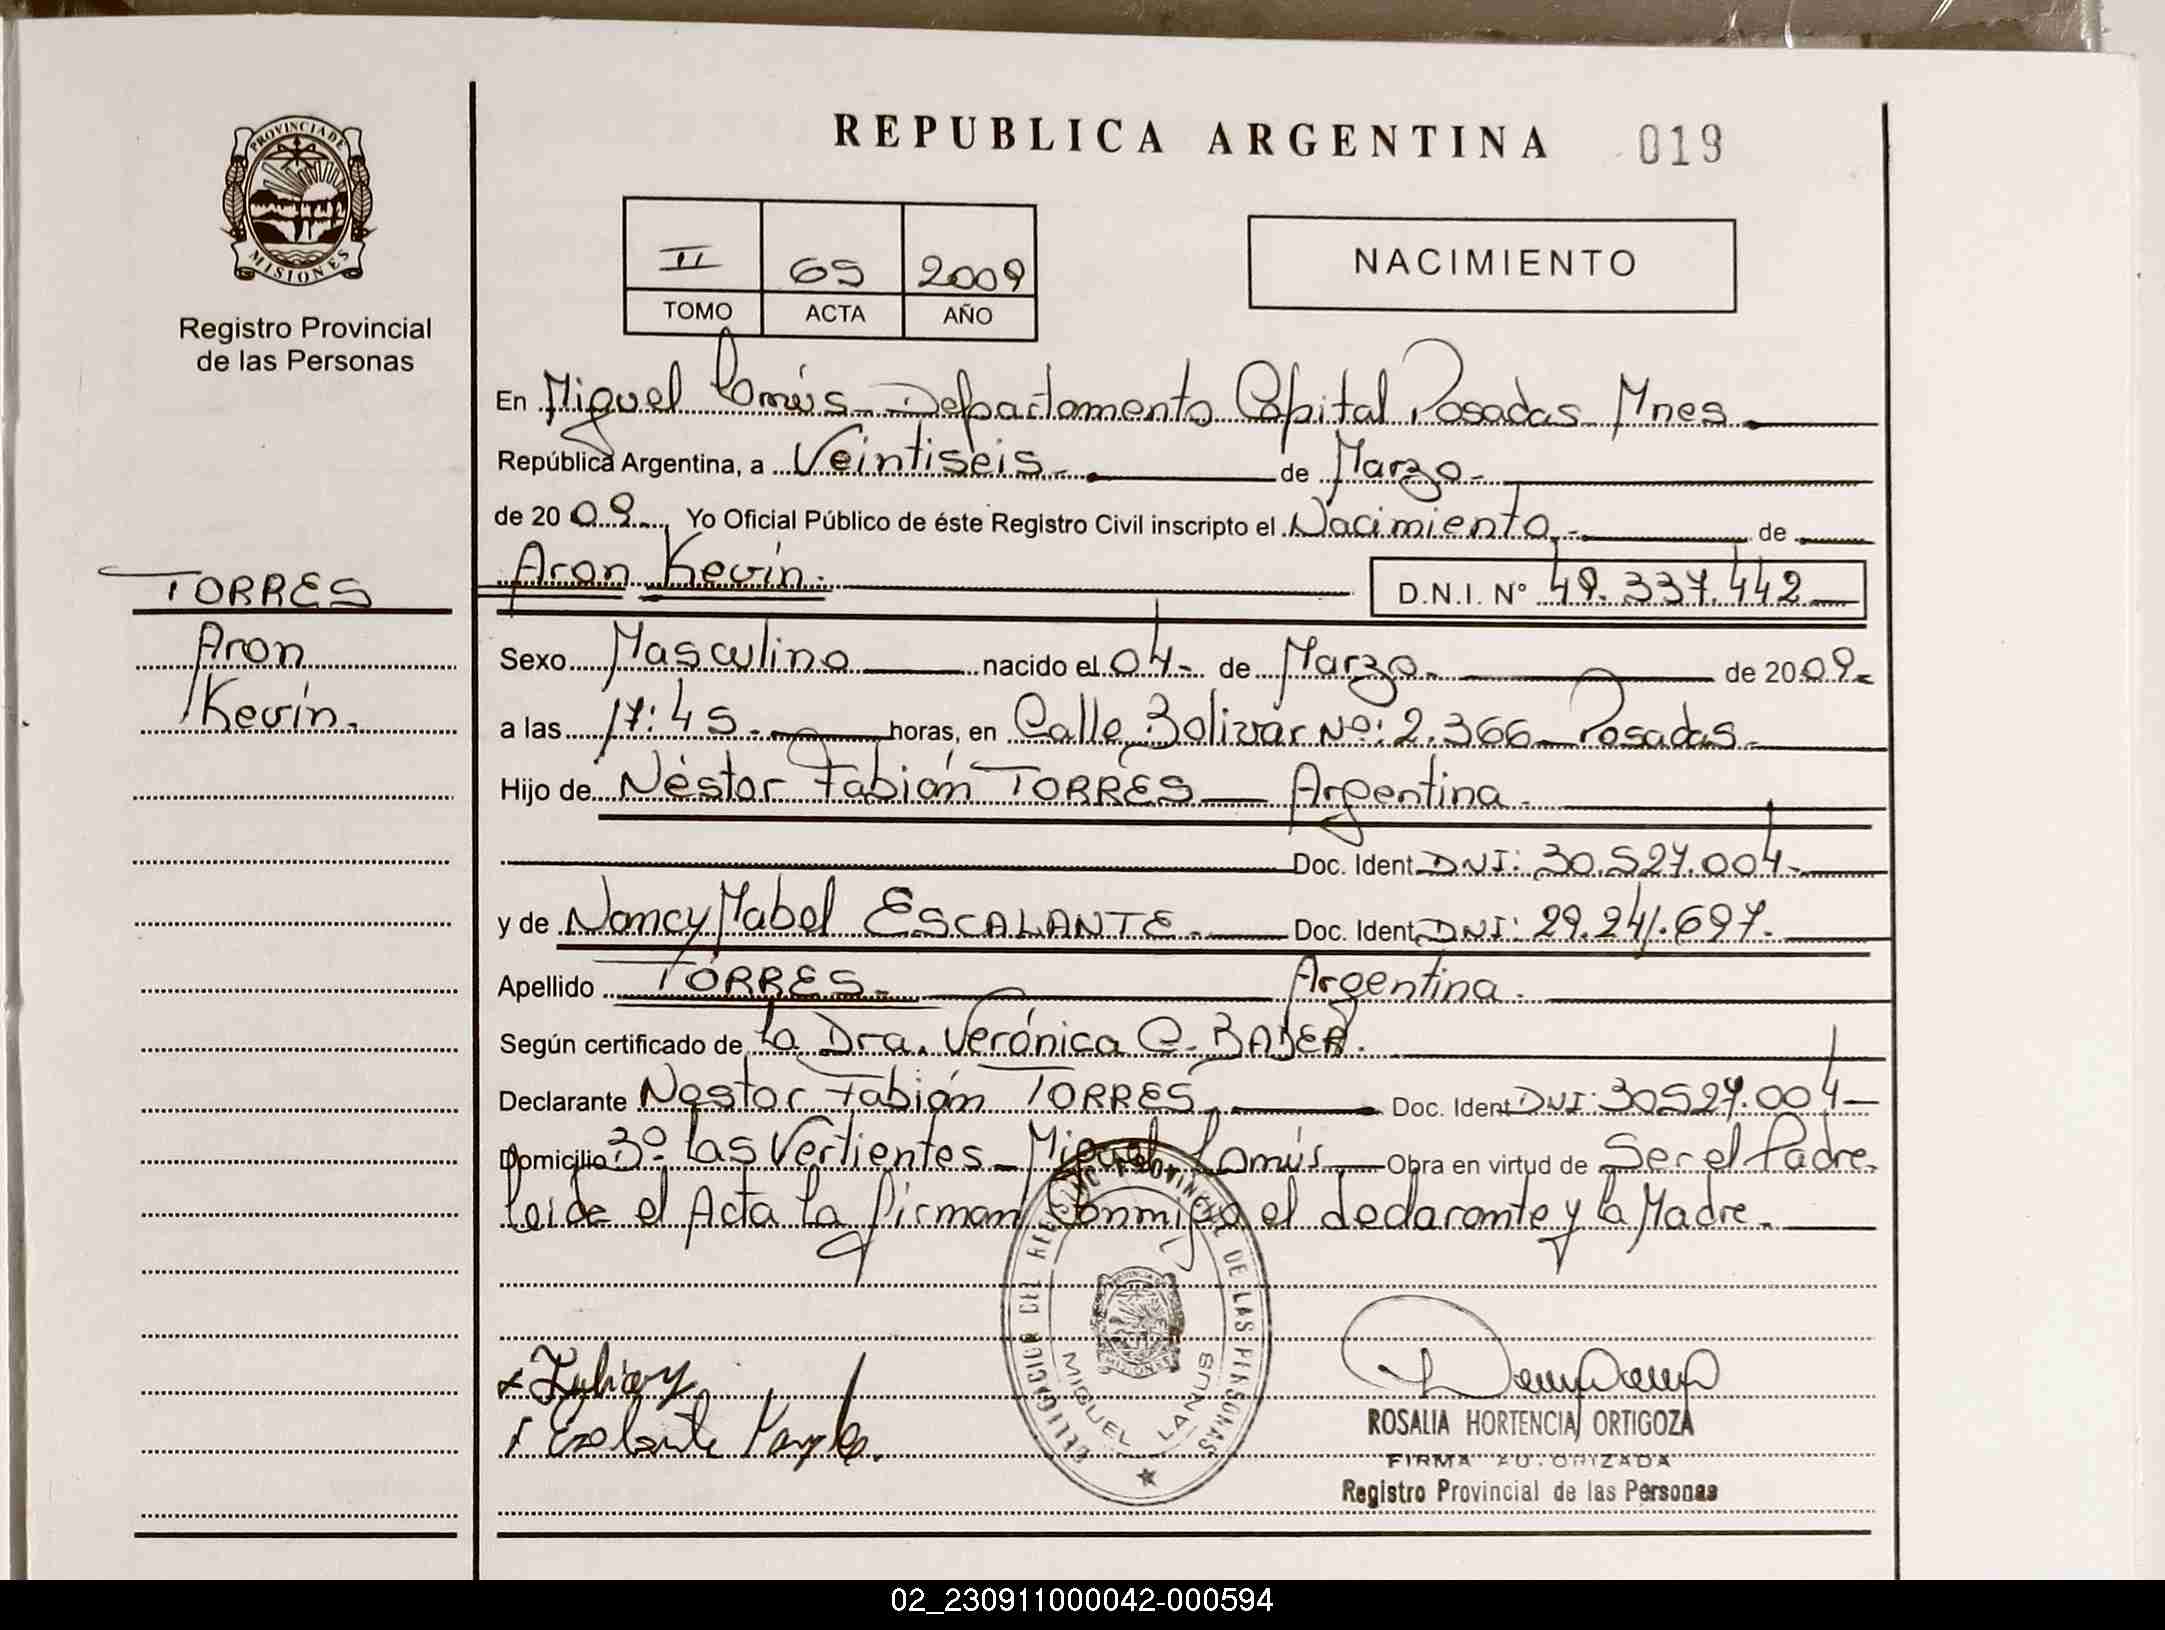 REPUBLICA ARGENTINA 019
PROVINCIA DE
MISIONES
Registro Provincial
de las Personas
II 65 2009
TOMO ACTA AÑO
NACIMIENTO
En Miguel Lanús - Departamento Capital Posadas Mnes.
República Argentina, a Veintiseis.- de Marzo.-
de 2009.-, Yo Oficial Público de éste Registro Civil inscripto el Nacimiento.- de
Aron Kevin. D.N.I. Nº 49.337.442
TORRES
Aron
Kevin.
Sexo Masculino nacido el 04.- de Marzo.- de 2009.-
a las 17:45.- horas, en Calle Bolivar Nº: 2.366 - Posadas.-
Hijo de Néstor Fabián TORRES - Argentina.
Doc. Ident. DNI: 30.527.004.-
y de Nancy Mabel ESCALANTE.- Doc. Ident. DNI: 29.241.697.-
Apellido TORRES.- Argentina.
Según certificado de la Dra. Verónica C. BADER.
Declarante Nestor Fabián TORRES Doc. Ident. DNI: 30527.004
Domicilio Bº. las Vertientes - Miguel Lanús Obra en virtud de Ser el Padre.
leide el Acta la firman Conmigo el declarante y la Madre.
DELEGACION DEL REGISTRO PROVINCIAL DE LAS PERSONAS
MIGUEL LANUS
Escalante
ROSALIA HORTENCIA ORTIGOZA
FIRMA AUTORIZADA
Registro Provincial de las Personas
02_230911000042-000594